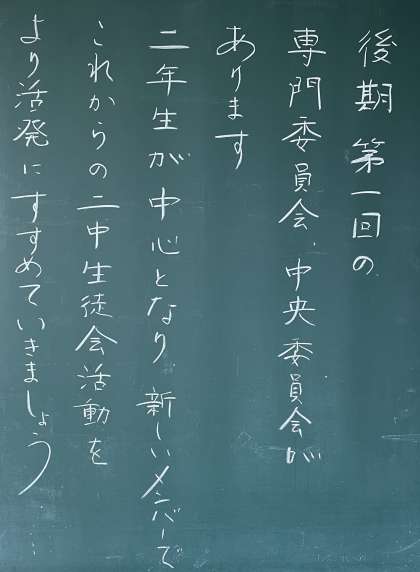 後期 第一回の
専門委員会、中央委員会が
あります
二年生が中心となり 新しいメンバーで
これからの二中生徒会活動を
より活発にすすめていきましょう